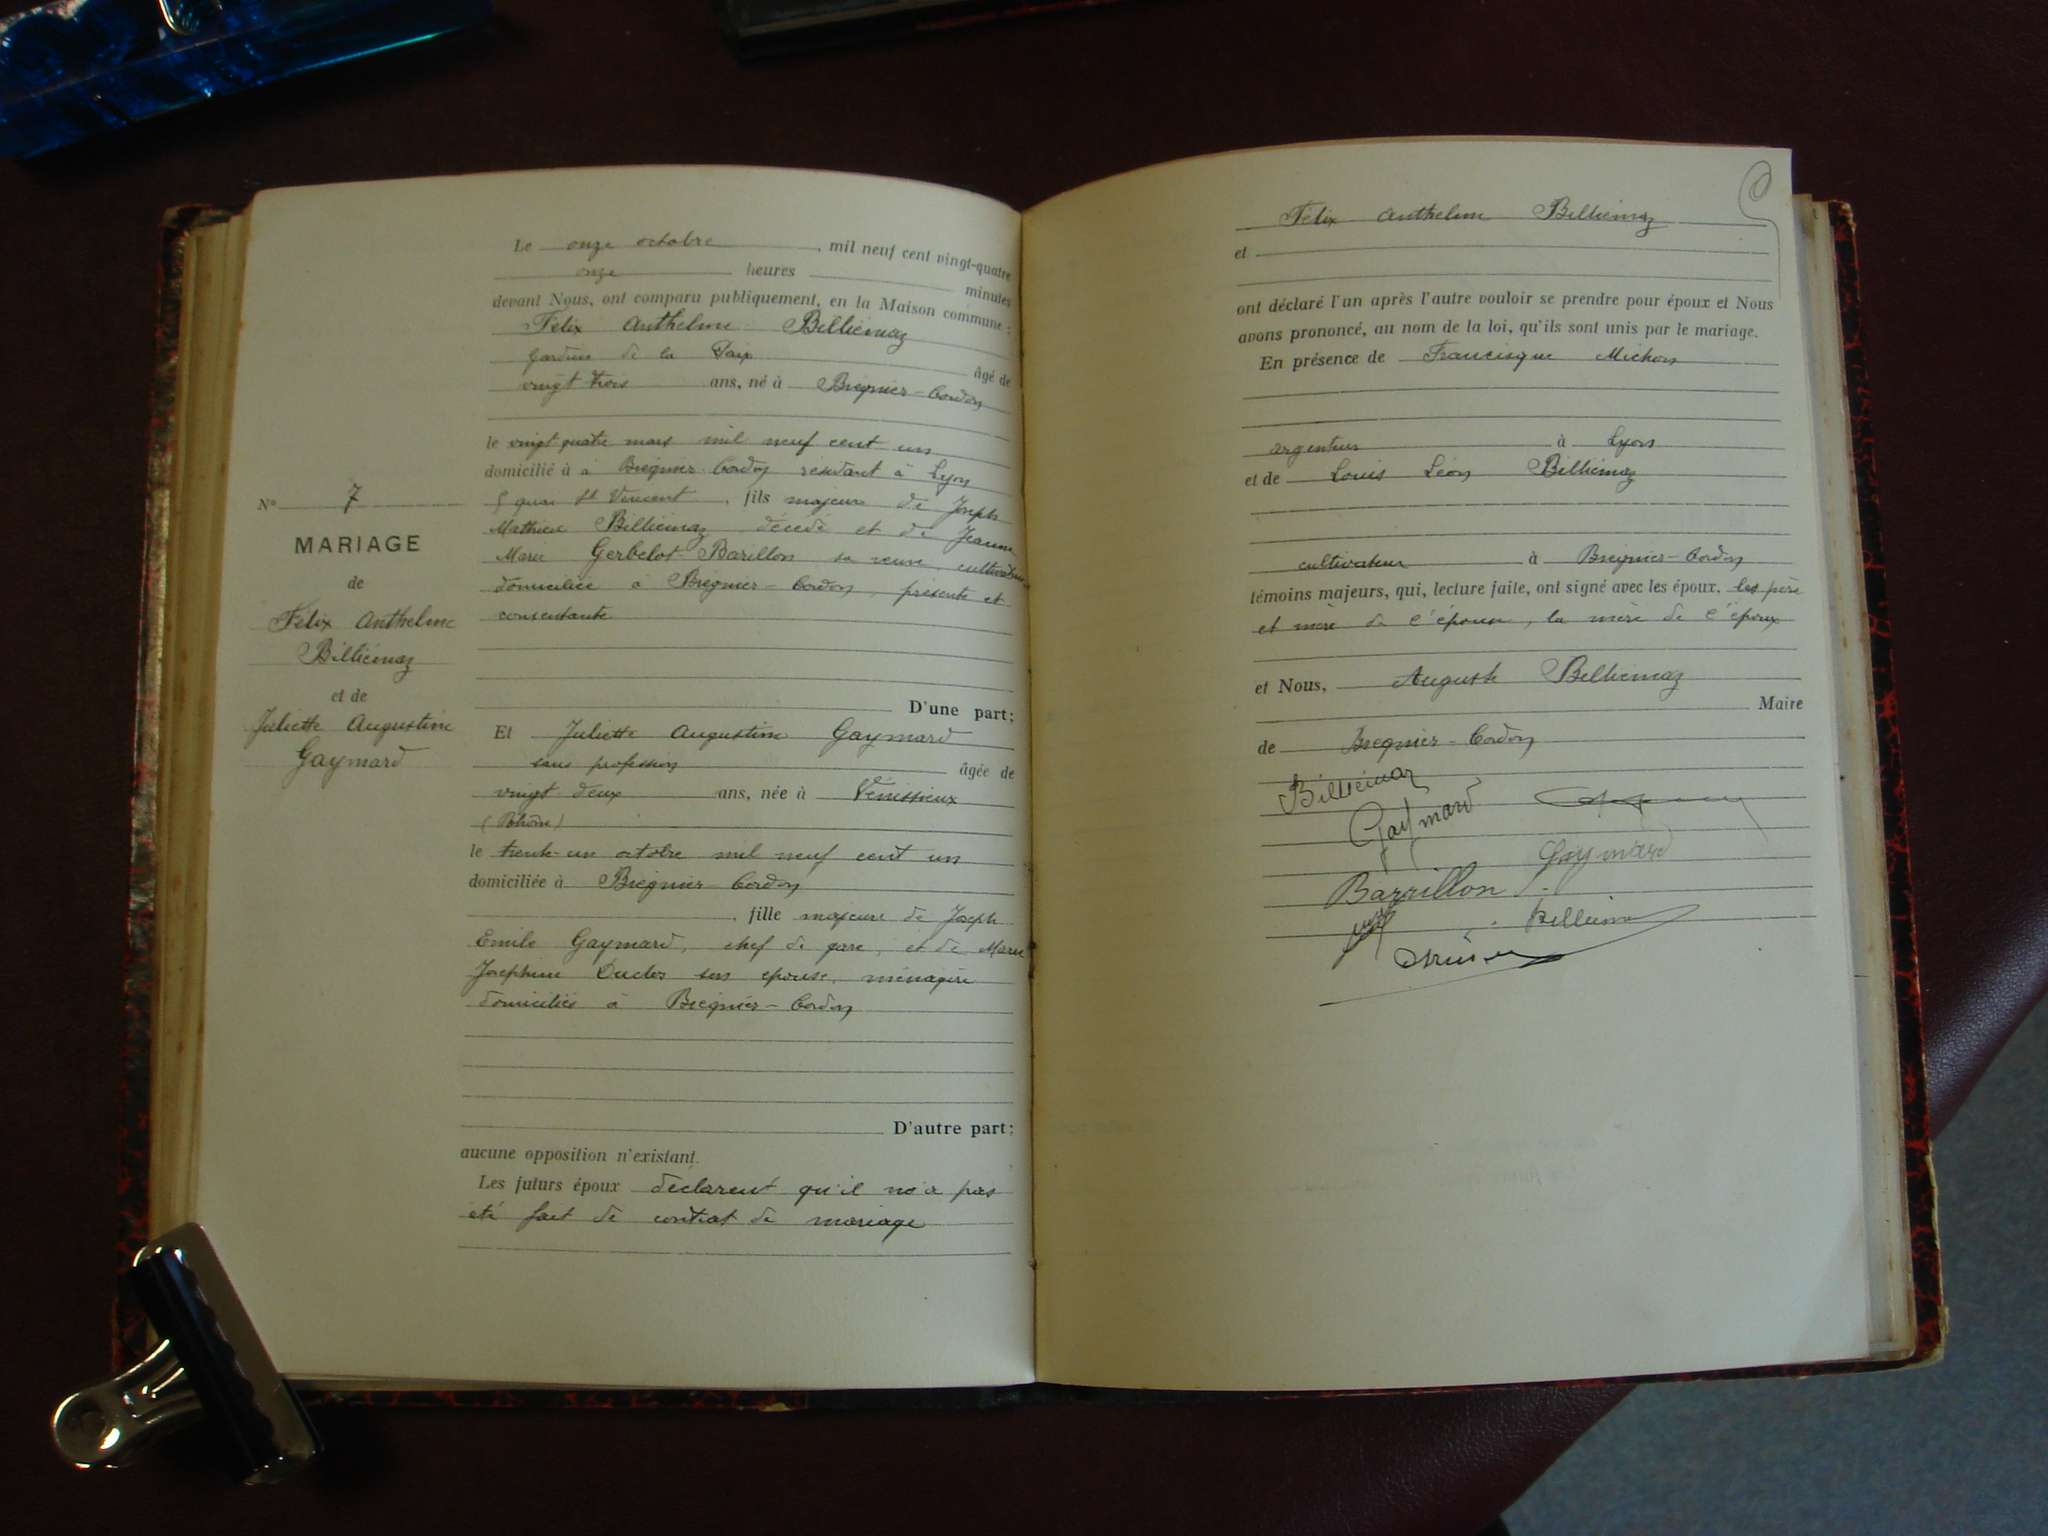 Le onze octobre, mil neuf cent vingt-quatre
onze heures minutes
devant Nous, ont comparu publiquement, en la Maison commune :
Félix Anthelme Billiémaz
Gardien de la Paix âgé de
vingt trois ans, né à Bregnier-Cordon
le vingt quatre mars mil neuf cent un
domicilié à à Bregnier-Cordon résidant à Lyon
5 quai St Vincent, fils majeur de Joseph
Mathieu Billiémaz décédé et de Jeanne
Marie Gerbelot-Barillon sa veuve, cultivatrice
domiciliée à Bregnier-Cordon, présente et
consentante
D'une part;
N° 7
MARIAGE
de
Félix Anthelme
Billiémaz
et de
Juliette Augustine
Gaymard
Et Juliette Augustine Gaymard
sans profession âgée de
vingt deux ans, née à Vénissieux
(Rhône)
le trente-un octobre mil neuf cent un
domiciliée à Bregnier-Cordon
, fille majeure de Joseph
Emile Gaymard, chef de gare, et de Marie
Josephine Duclos son épouse, ménagère
domiciliés à Bregnier-Cordon
D'autre part;
aucune opposition n'existant.
Les futurs époux déclarent qu'il n'a pas
été fait de contrat de mariage
Félix Anthelme Billiémaz
et
ont déclaré l'un après l'autre vouloir se prendre pour époux et Nous
avons prononcé, au nom de la loi, qu'ils sont unis par le mariage.
En présence de Francisque Michon
argenteur à Lyon
et de Louis Léon Billiémaz
cultivateur à Bregnier-Cordon
témoins majeurs, qui, lecture faite, ont signé avec les époux, les père
et mère de l'épouse, la mère de l'époux
et Nous, Auguste Billiémaz
Maire
de Bregnier-Cordon
Billiémaz
Gaymard
Gaymard
Barrillon J.
Billiémaz